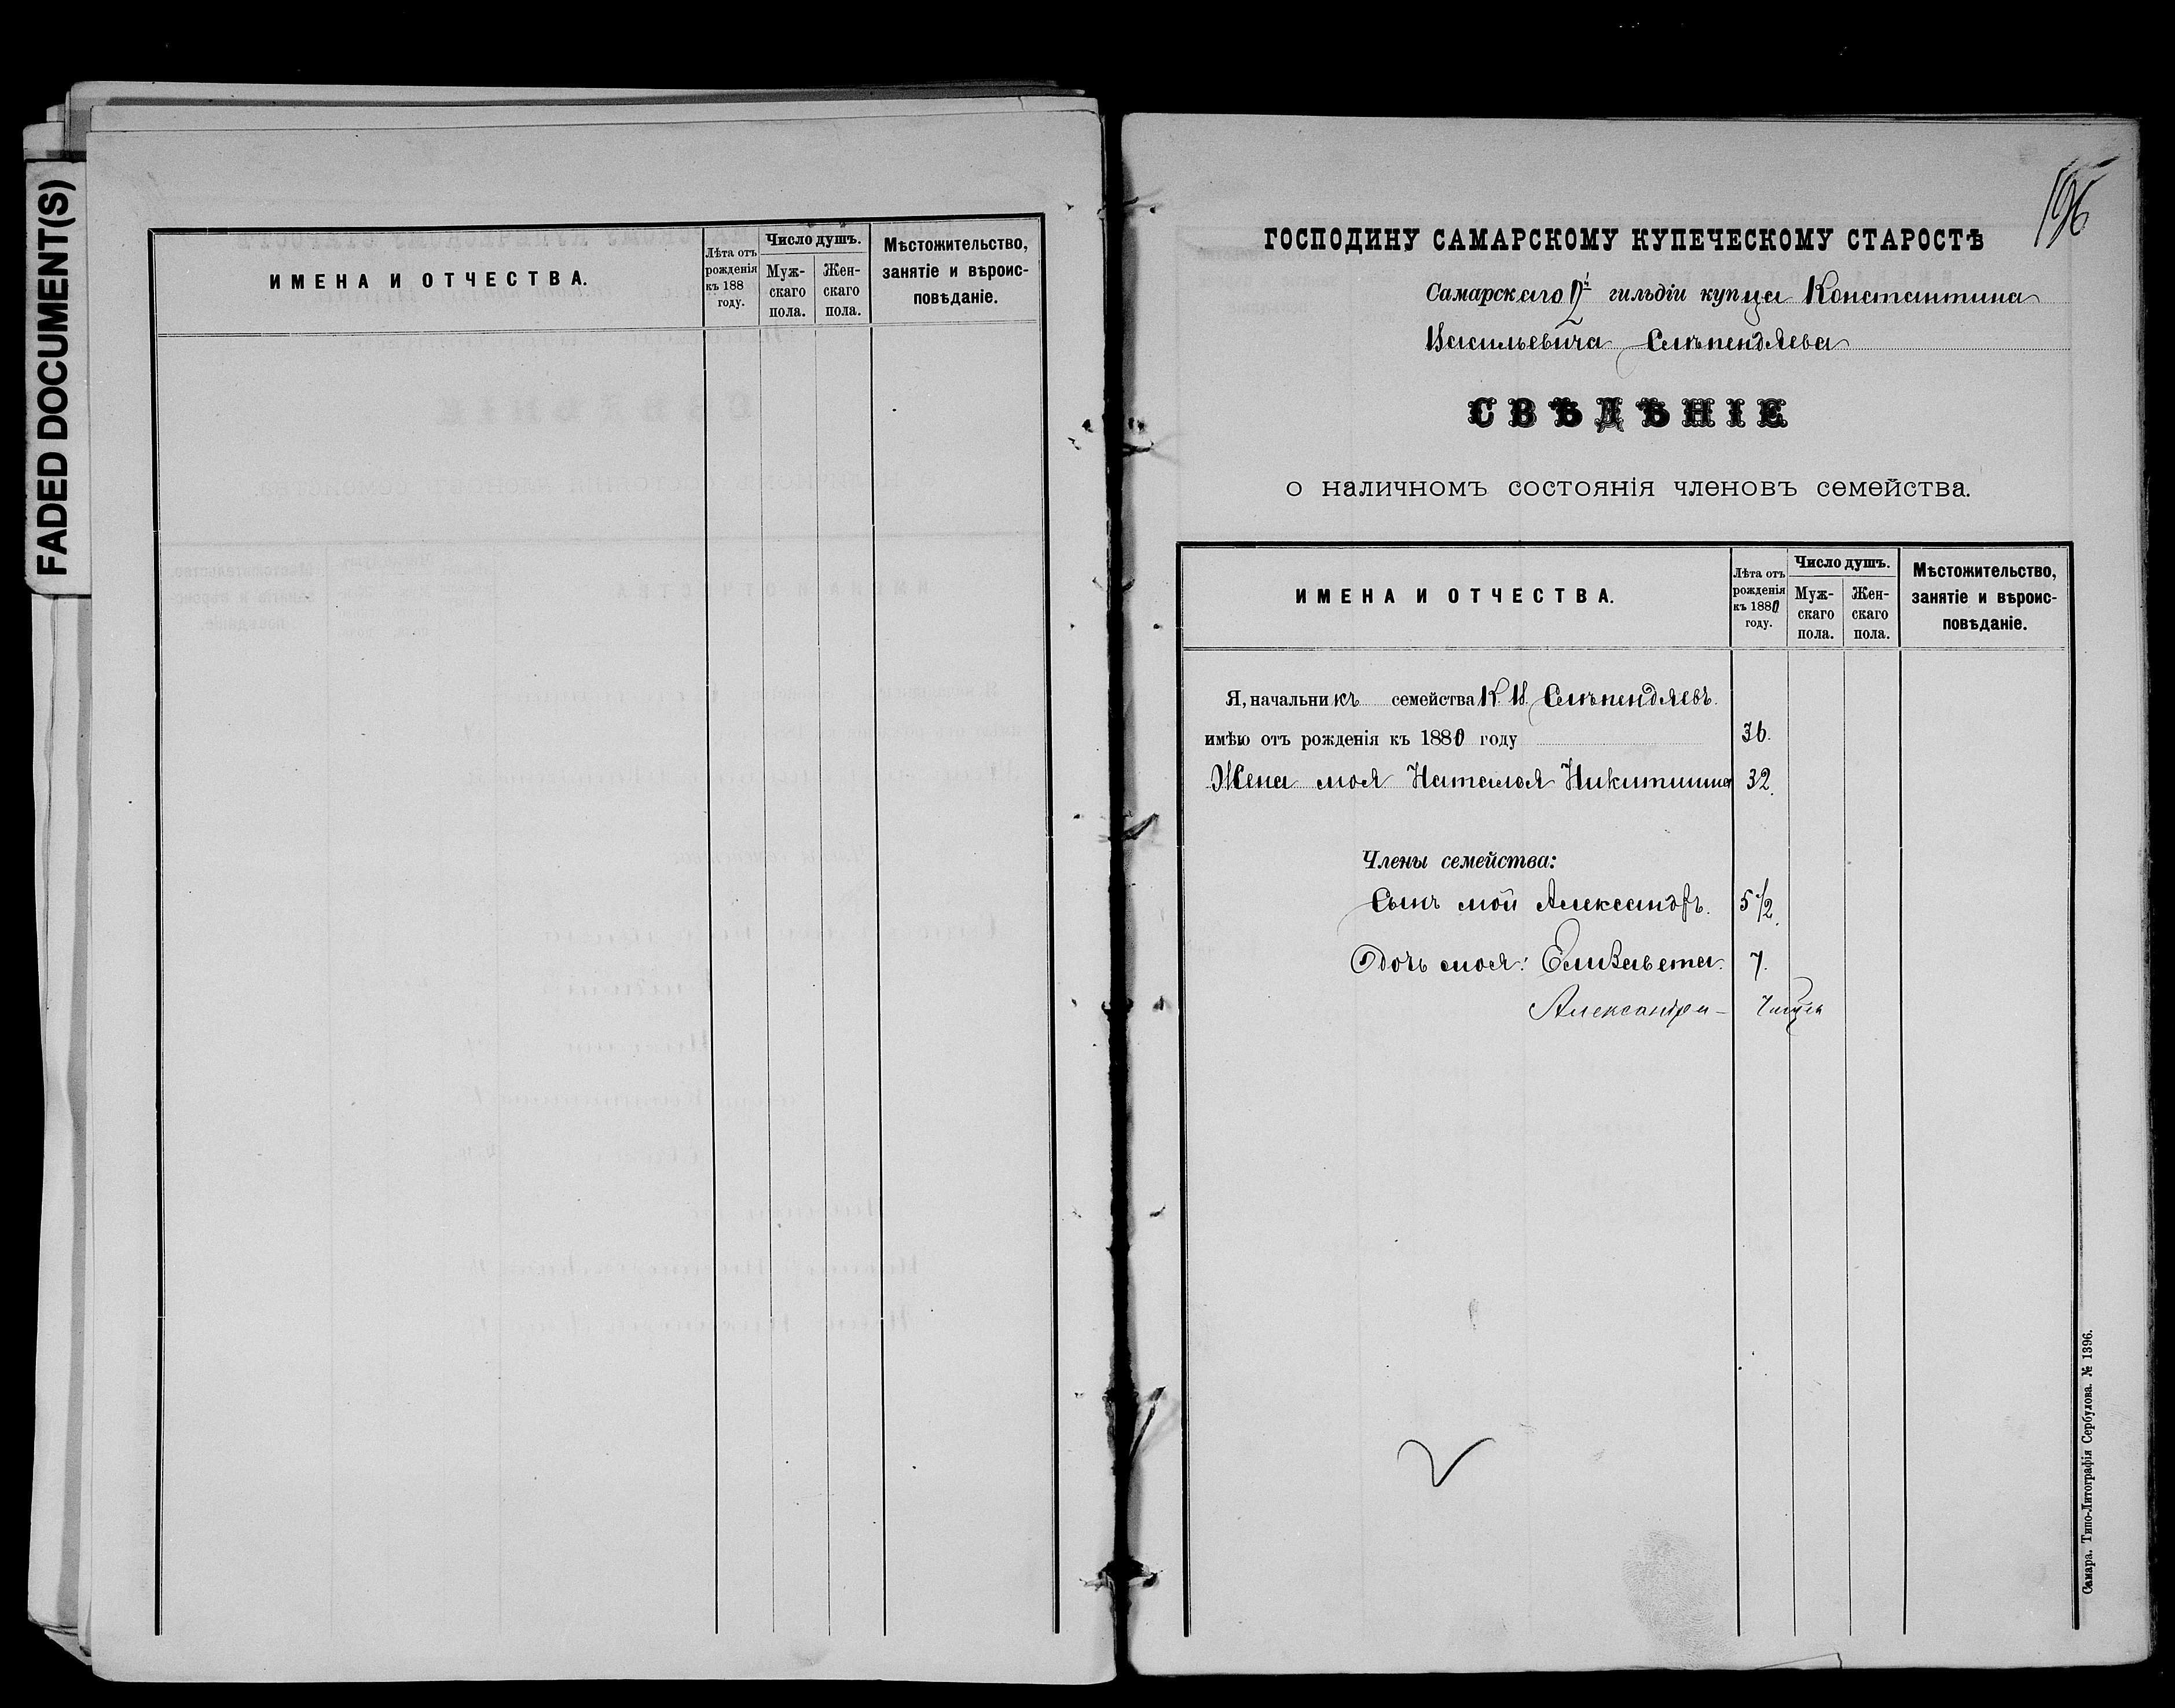 FADED DOCUMENT(S)
ИМЕНА И ОТЧЕСТВА.
Лѣта отъ рожденія къ 188 году.
Число душъ.
Муж-скаго пола.
Жен-скаго пола.
Мѣстожительство, занятіе и вѣроис-повѣданіе.
196
ГОСПОДИНУ САМАРСКОМУ КУПЕЧЕСКОМУ СТАРОСТѢ
Самарскаго 2й гильдіи купца Константина
Васильевича Слѣпендяева
СВѢДѢНІЕ
о наличномъ состоянія членовъ семейства.
ИМЕНА И ОТЧЕСТВА.
Лѣта отъ рожденія къ 1880 году.
Число душъ.
Муж-скаго пола.
Жен-скаго пола.
Мѣстожительство, занятіе и вѣроис-повѣданіе.
Я, начальникъ семейства К. В. Слѣпендяевъ.
имѣю отъ рожденія къ 1880 году 36.
Жена моя Наталья Никитишна 32.
Члены семейства:
Сынъ мой Александръ. 5 1/2.
Дочь моя: Елизавета. 7.
Александра –
Самара. Типо-Литографія Сербулова. № 1396.